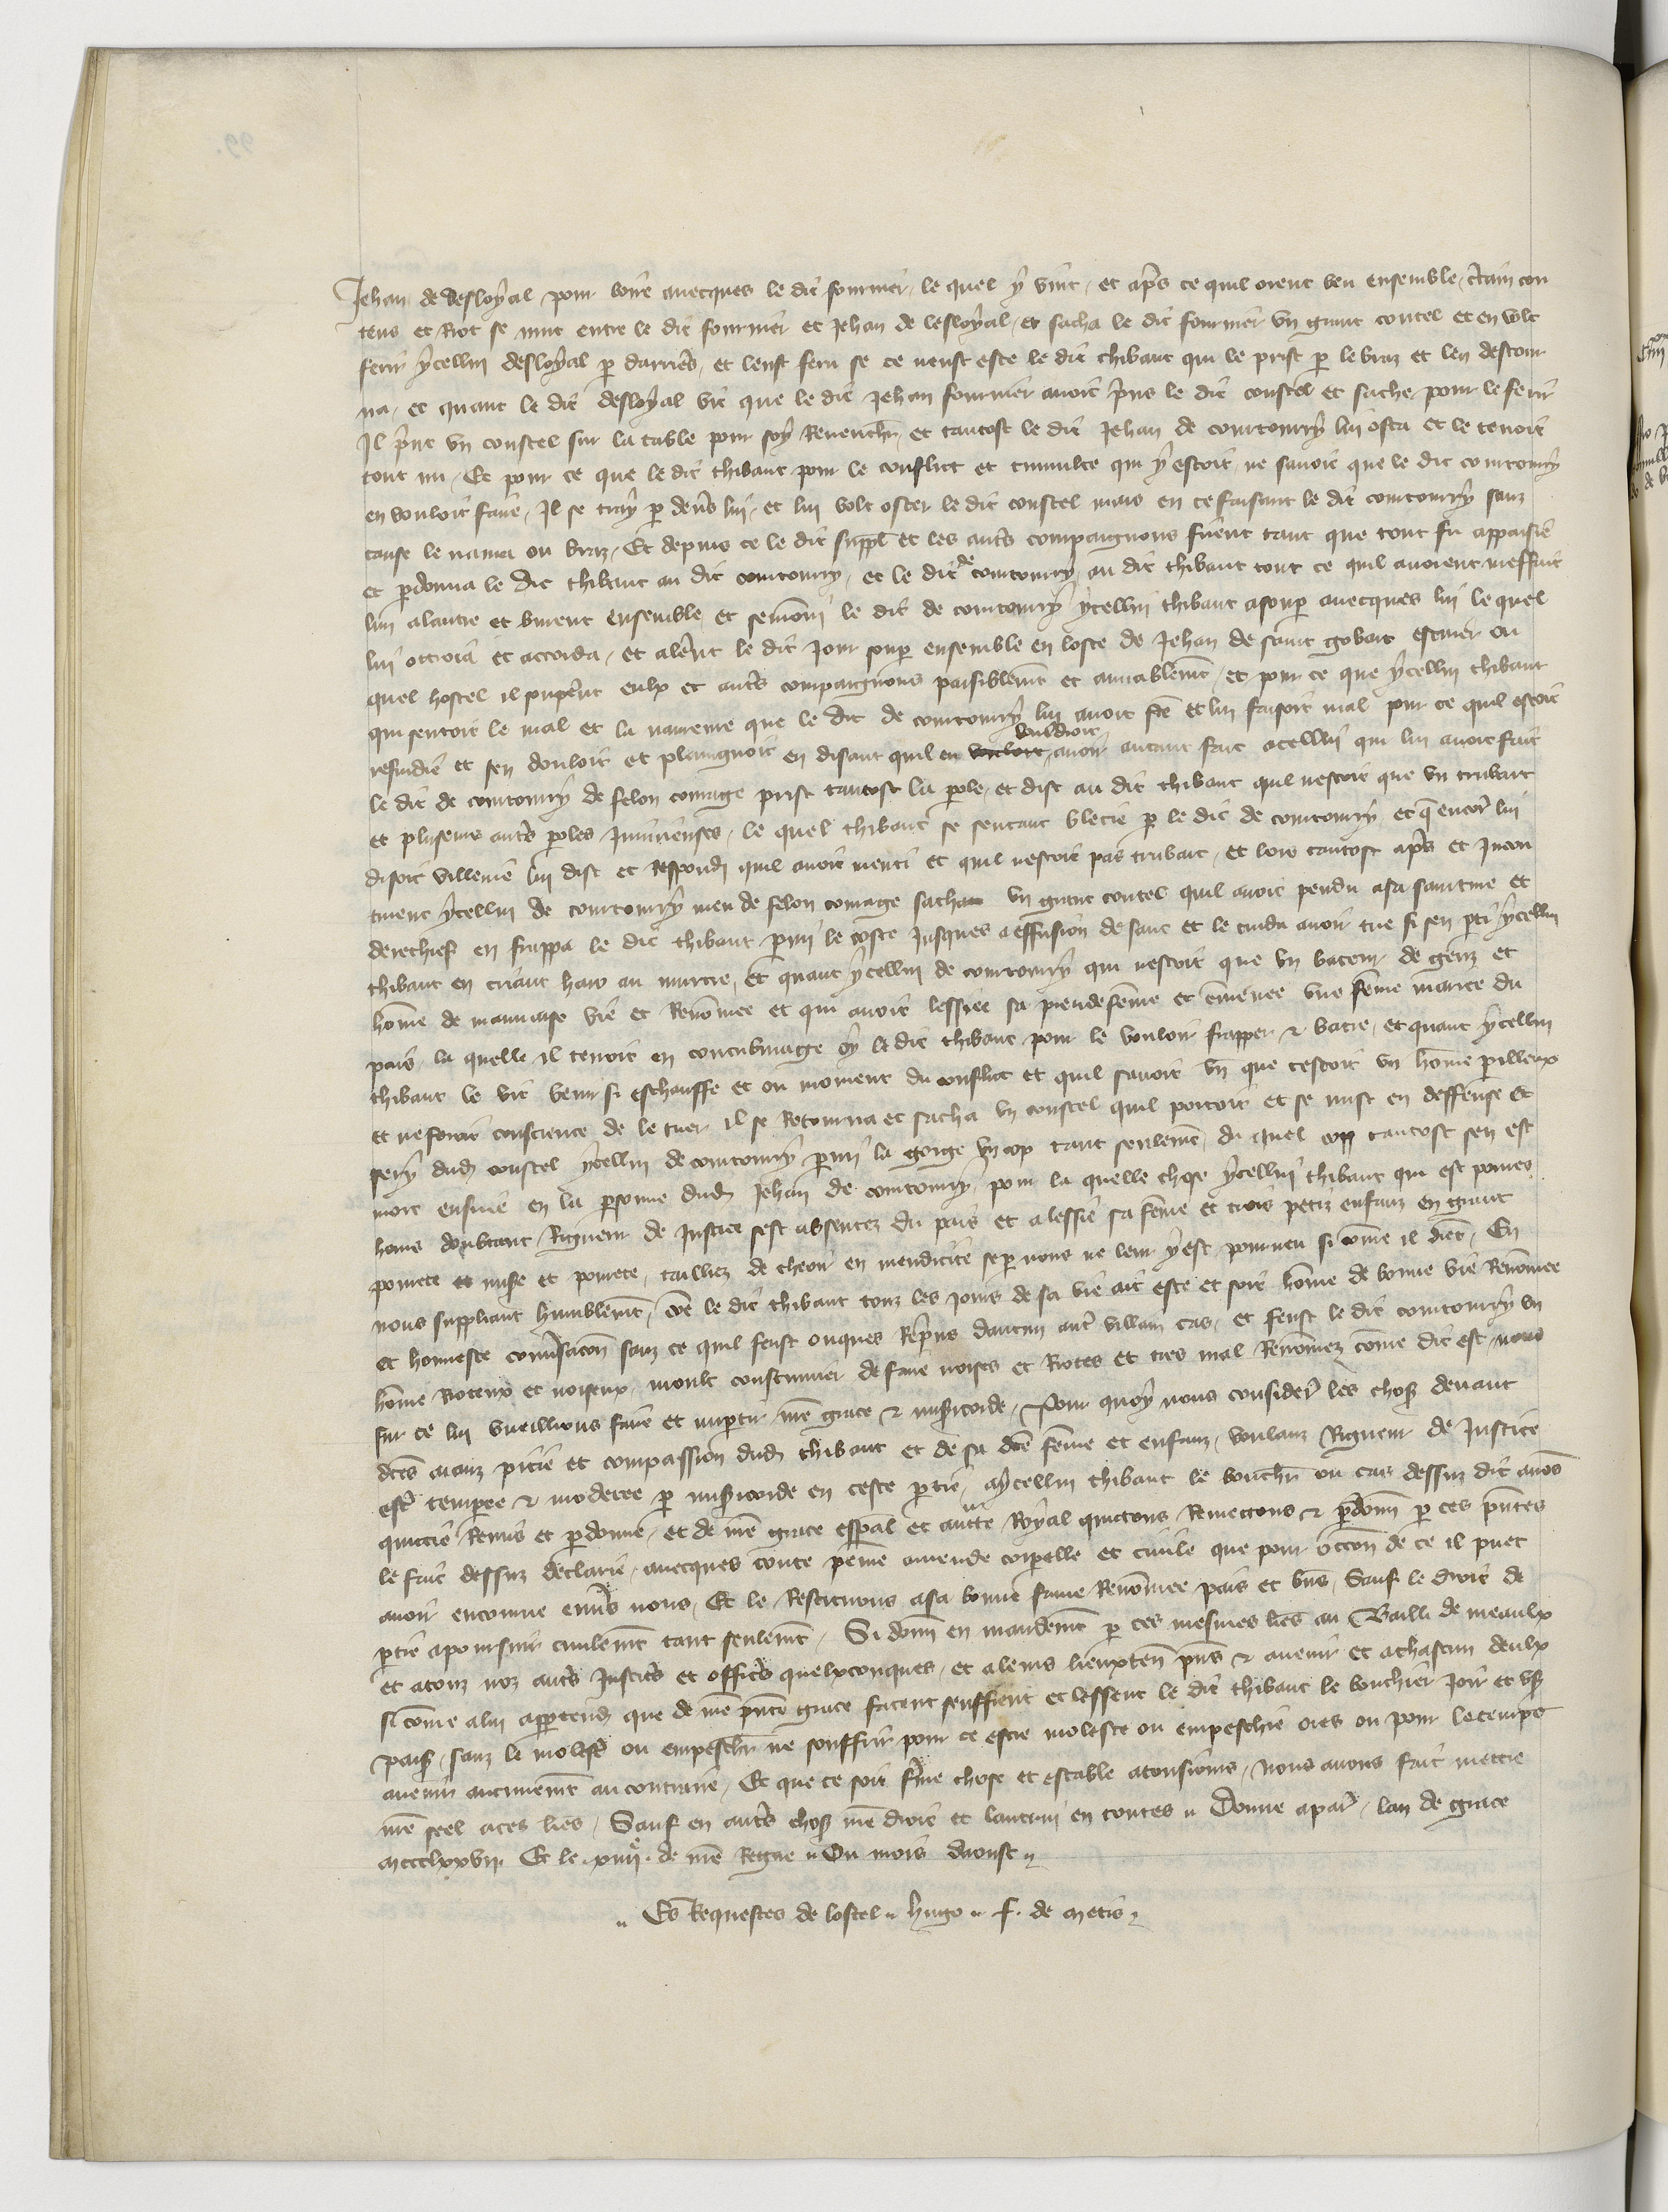 Jehan de desloyal pour boire avecques le dit fournier, le quel y vint, et ap̃s ce quil orent beu ensemble, c̃tain con
tens et Riot se mut entre le dit fournier et Jehan de lesloyal, et sacha le dit fournier un grant coutel et en volt
ferir ycellui desloyal p darriẽs, et leust feru se ce neust este le dit thibaut qui le prist p le braz et len destour
na, et quant le dit desloyal vit que le dit Jehan fournier avoit p̃ns le dit coustel et sache pour le ferir
Il p̃nt un coustel sur la table pour soy Revench̃, et tantost le dit Jehan de courtomry lui osta et le tenoit
tout nu, Et pour ce que le dit thibaut pour le conflict et tumulte qui y estoit, ne savoit que le dit courtomry
en vouloit faire, Il se tray p devs̃ lui, et lui volt oster le dit coustel mais en ce faisant le dit courtomry sanz
cause le navra ou braz, Et depuis ce le dit suppl̃ et les autr̃s compaignons firent tant que tout fu appaisie
et pdonna le dit thibaut au dit courtomry, et le dit de courtomry au dit thibaut tout ce quil avoient meffait
lun alautre et burent ensemble, et semoni le dit de courtomry ycellui thibaut asoup avecques lui le quel
lui ottroia et accorda, et alẽrt le dit Jour soup ensemble en loste de Jehan de saint gobart escuier ou
quel hostel il soupẽrt eulx et autr̃s compaignons paisiblem̃t et amiablem̃t, et pour ce que ycellui thibaut
qui sentoit le mal et la navreure que le dit de courtomry lui avoit fc̃e et lui faisoit mal pour ce quil estoit
refroidie et sen douloit et plaingnoit en disant quil en vouloit vouldroit avoir autant fait acellui qui lui avoit fait
le dit de courtomry de felon courage prist tantost la pole, et dist au dit thibaut quil nestoit que un trubart
et pluseurs autr̃s poles Iniurieuses, le quel thibaut se sentant blecie p le dit de courtomry et q̃ encor̃ lui
disoit villenie lui dist et Respondi quil avoit menti et quil nestoit pas trubart, et lors tantost ap̃s et Incon
tinent ycellui de courtomry meu de felon courage sacha un grant coutel quil avoit pendu asa sainture et
derechief en frappa le dit thibaut pmi le coste Jusques a effusion de sanc et le cuida avoir tue si sen pti ycellui
thibaut en criant haro au murtre, Et quant ycellui de courtomry qui nestoit que un bateur de genz et
hom̃e de mauvaise vie et Renom̃ee et qui avoit lessiee sa preudefem̃e et em̃enee une fem̃e mariee du
pais, la quelle il tenoit en concubinage oy le dit thibaut pour le vouloir frapper ⁊ batre, et quant ycellui
thibaut le vit venir si eschauffe et ou moment du conflict et quil savoit bñ que cestoit un hom̃e perilleux
et ne feroit conscience de le tuer il se Retourna et sacha un coustel quil portoit et se mist en deffense Et
fery dud̃ coustel ycellui de courtomry pmi la gorge un cop tant seulem̃t, du quel cop tantost sen est
mort ensuie en la psonne dud̃ Jehan de courtomry, pour la quelle chose ycellui thibaut qui est povres
homs doubtant Rigueur de Justice sest absentez du pais et a lessie sa fem̃e et trois petiz enfanz en grant
povrete et mise et povrete, tailliez de cheoir en mendicite se p nous ne leur y est pourveu si com̃e il dient, En
nous suppliant humblem̃t, c̃õe le dit thibaut touz les Jours de sa vie ait este et soit hom̃e de bonne vie Renom̃ee
et honneste conṽsacon̄ sanz ce quil feust onques Rep̃ns daucun autr̃ villain cas, et feust le dit courtomry un
hom̃e Roteux et noiseux, moult coustumier de faire noises et Rotes et tres mal Renom̃ez com̃e dit est, nous
sur ce lui vueillions faire et imptir nr̃e grace ⁊ mis̃icorde, Pour quoy nous considere les choses devant
dc̃es aianz pitie et compassion dud̃ thibaut et de sa dc̃e fem̃e et enfanz, voulanz Rigueur de Justice
estr̃ tempree ⁊ moderee p mis̃icorde en ceste ptie, aycellui thibaut le bouch̃r ou cas dessuz dit avons̃
quictie Remis et pdonne, et de nr̃e grace esp̃al et auc̃te Royal quictons Remectons ⁊ pdonñ p ces p̃ntes
le fait dessuz declarie, avecques toute peine amende corpelle et civile que pour occon̄ de ce il puet
avoir encorue env̂s nous, Et le Restituons asa bonne fame Renom̃ee pais et bñs, Sauf le droit de
ptie apoursuir civilem̃t tant seulem̃t, Si donñ en mandem̃t p ces mesmes lr̃es au Bailli de meaulx
et atouz noz autr̃s Justic̃s et offic̃s quelxconques, et aleurs lieuxten̄ p̃ns ⁊ avenir et achascun deulx
si com̃e alui appartend̃ que de nr̃e p̃nte grace facent seuffrent et lessent le dit thibaut le bouchier Joir et us̃
paisib̃, sanz le molest̃ ou empesch̃ ne souffrir pour ce estre moleste ou empeschie ores ou pour le temps
avenir aucunem̃t au contraire, Et que ce soit ferme chose et estable atousiours, Nous avons fait mettre
nr̃e seel aces lr̃es, Sauf en autr̃s choses nr̃e droit et lautrui en toutes. Donne apar̃, lan de grace
mccclxxvij. Et le .xiiij.e de nr̃e Regne. Ou mois daoust.
Es Requestes de lostel. hugo. f. de metis